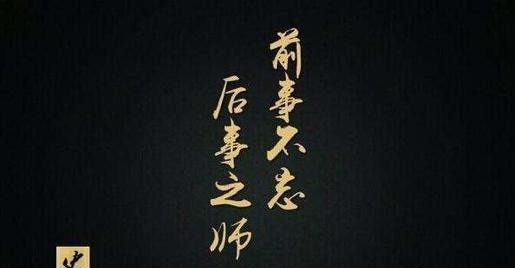 前事不忘
后事之师